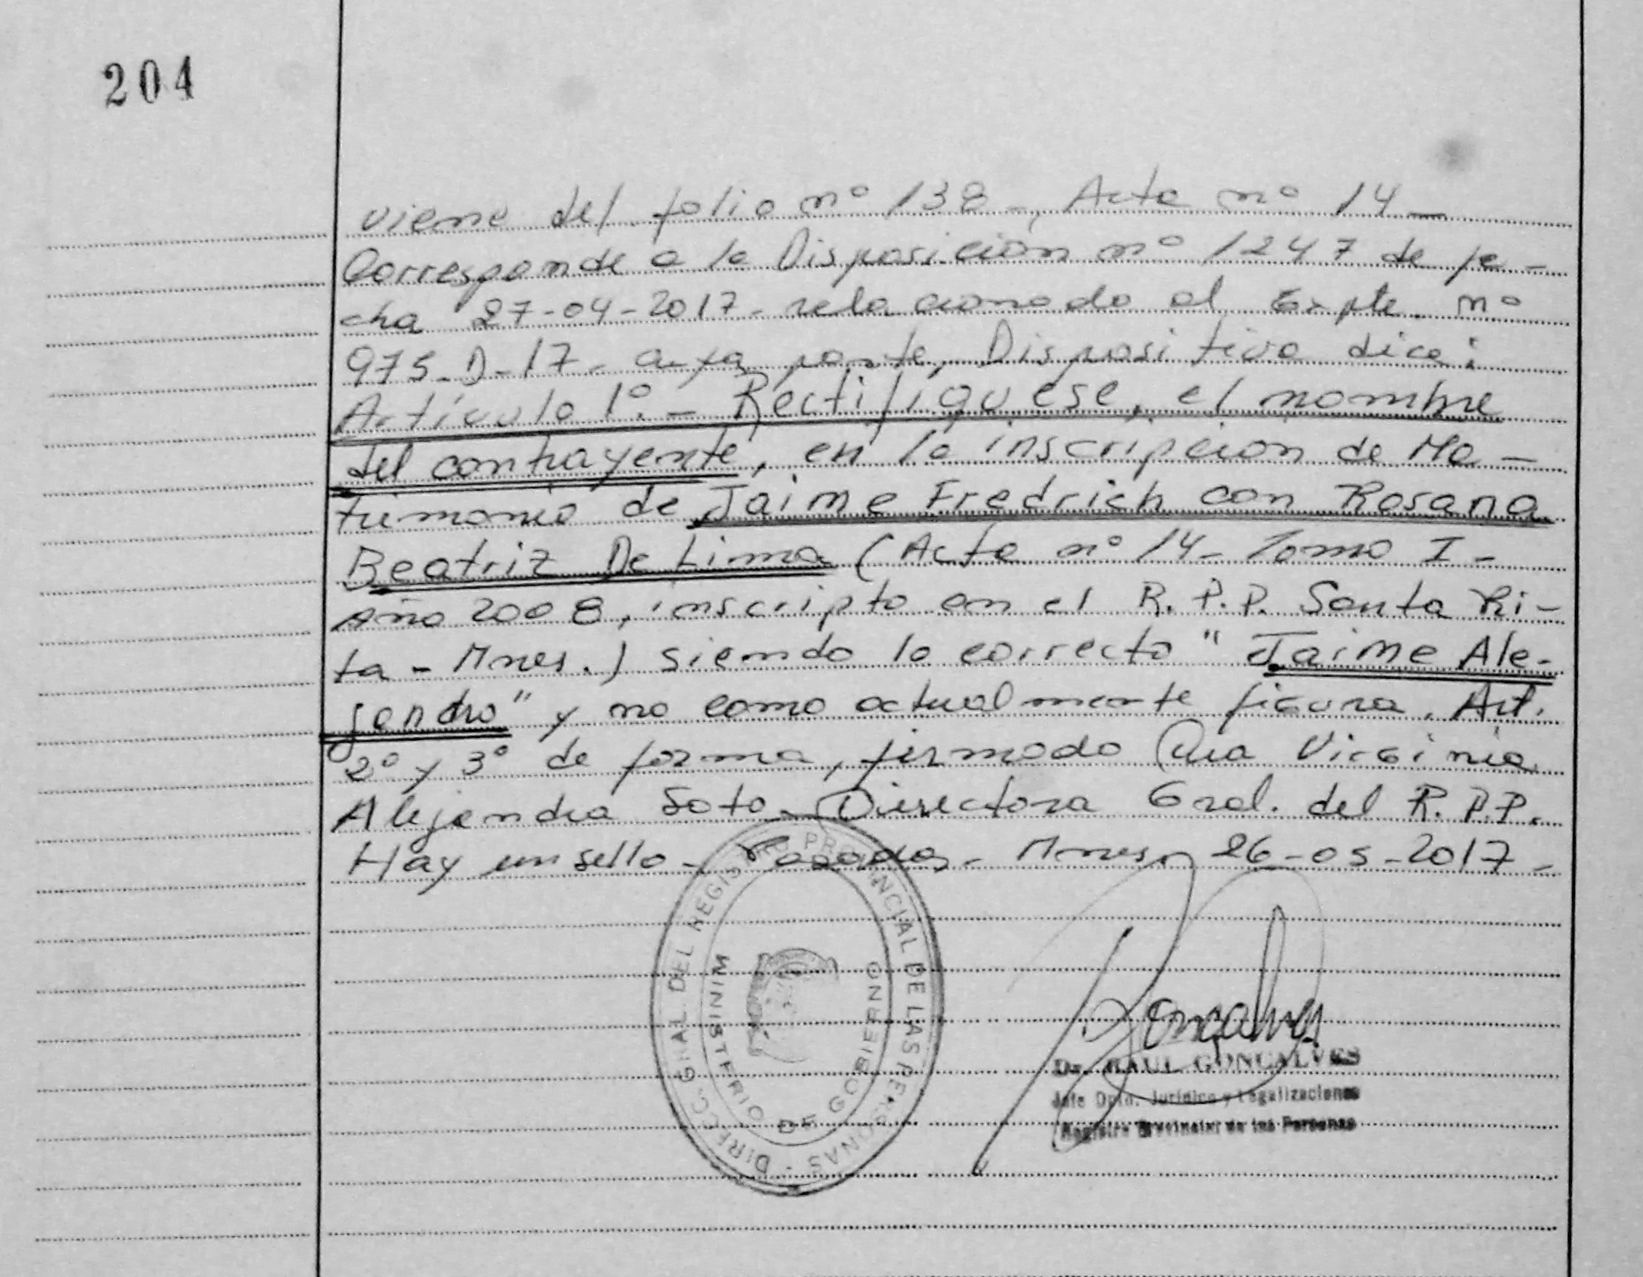 204
viene del folio nº 138 -, Acta nº 14 -
Corresponde a la Disposición nº 1247 de fe -
cha 27-04-2017 - relacionado al Expte. nº
975-D-17 - cuya parte Dispositiva dice:
Artículo 1º. - Rectifíquese, el nombre
del contrayente, en la inscripción de Ma -
trimonio de Jaime Fredrich con Rosana
Beatriz De Lima (Acta nº 14 - Tomo I -
Año 2008, inscripto en el R.P.P. Santa Ri -
ta - Mnes.) siendo lo correcto "Jaime Ale -
jandro" y no como actualmente figura. Art.
2º y 3º de forma, firmado Dra Virginia
Alejandra Soto - Directora Gral. del R.P.P.
Hay un sello - Posadas - Mnes, 26-05-2017 -
DIRECC. GRAL. DEL REGISTRO PROVINCIAL DE LAS PERSONAS -
MINISTERIO DE GOBIERNO
Goncalves
Dr. RAUL GONCALVES
Jefe Dpto. Jurídico y Legalizaciones
Registro Provincial de las Personas